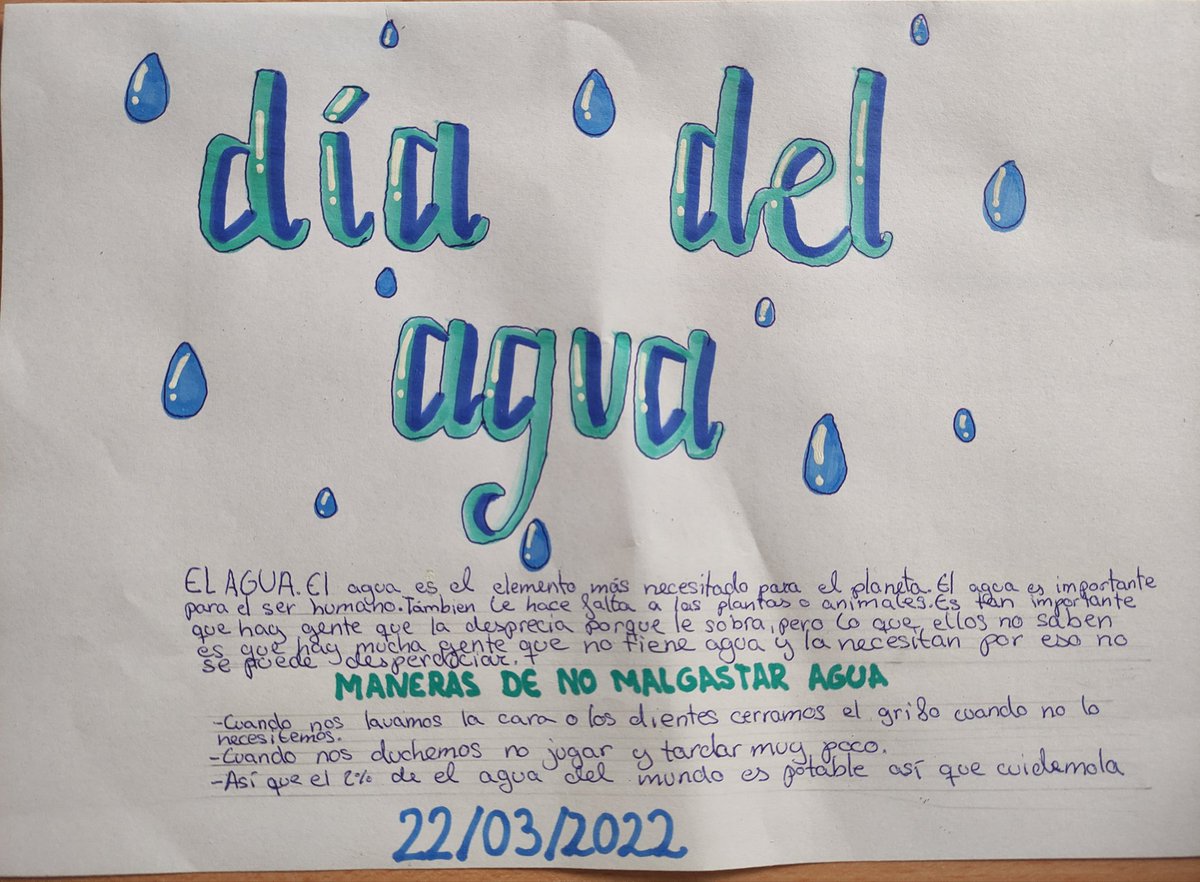 día del
agua
EL AGUA. El agua es el elemento más necesitado para el planeta. El agua es importante
para el ser humano. Tambien le hace falta a las plantas o animales. Es tan importante
que hay gente que la desprecia porque le sobra, pero lo que ellos no saben
es que hay mucha gente que no tiene agua y la necesitan por eso no
se puede desperdociar.
MANERAS DE NO MALGASTAR AGUA
-Cuando nos lavamos la cara o los dientes cerramos el grifo cuando no lo
necesitemos.
-Cuando nos duchemos no jugar y tardar muy poco.
-Así que el 2% de el agua del mundo es potable así que cuidemola
22/03/2022